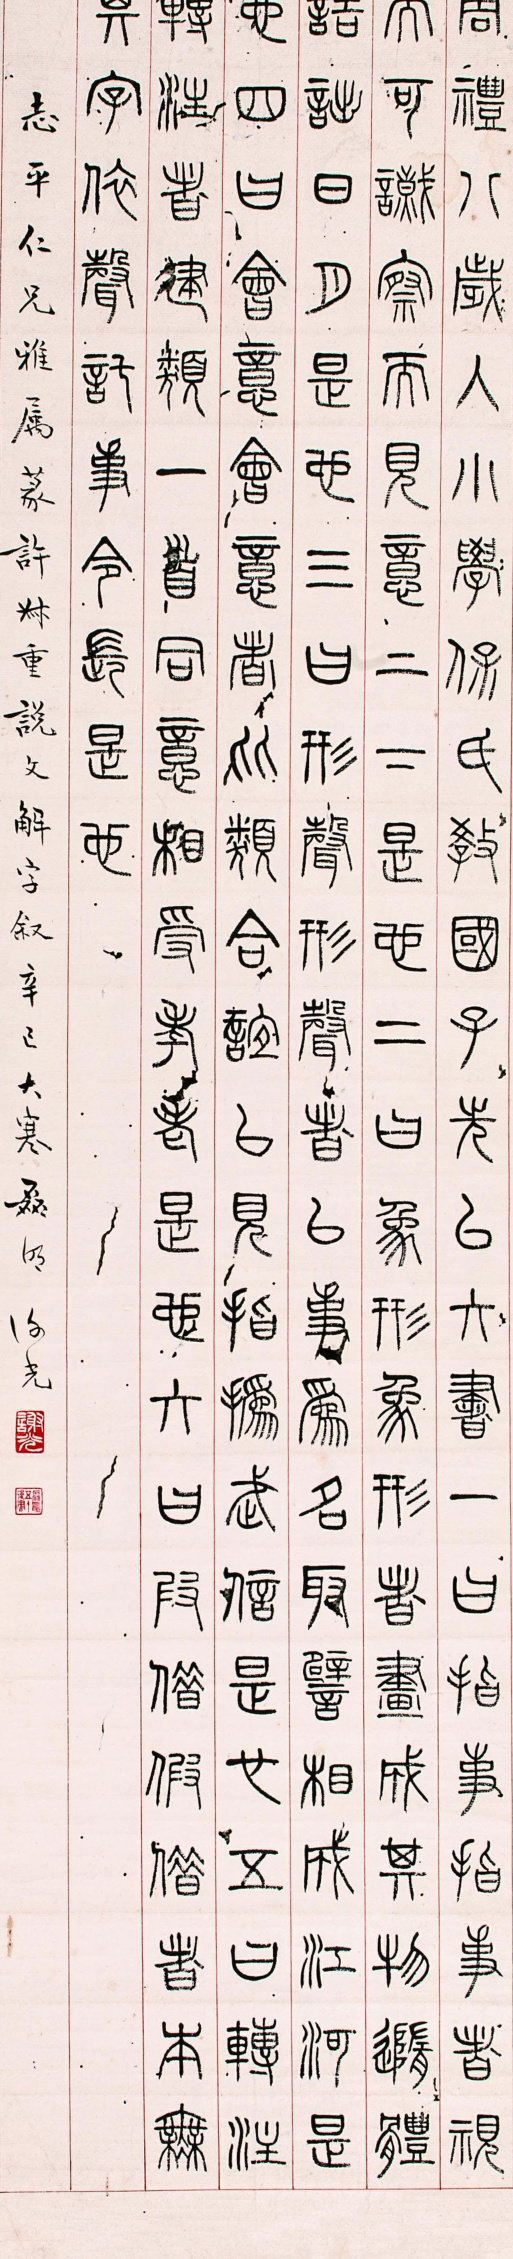 周禮八歲入小學保氏敎國子先㠯六書一曰指事指事者視
而可識察而見意二二是也二曰象形象形者畫成其物隨體
詰詘日月是也三曰形聲形聲者㠯事爲名取譬相成江河是
也四曰會意會意者比類合誼㠯見指撝武信是也五曰轉注
轉注者建類一首同意相受考老是也六曰叚借假借者本無
其字依聲託事令長是也
志平仁兄雅属篆許叔重說文解字叙辛巳大寒 謝光
謝光